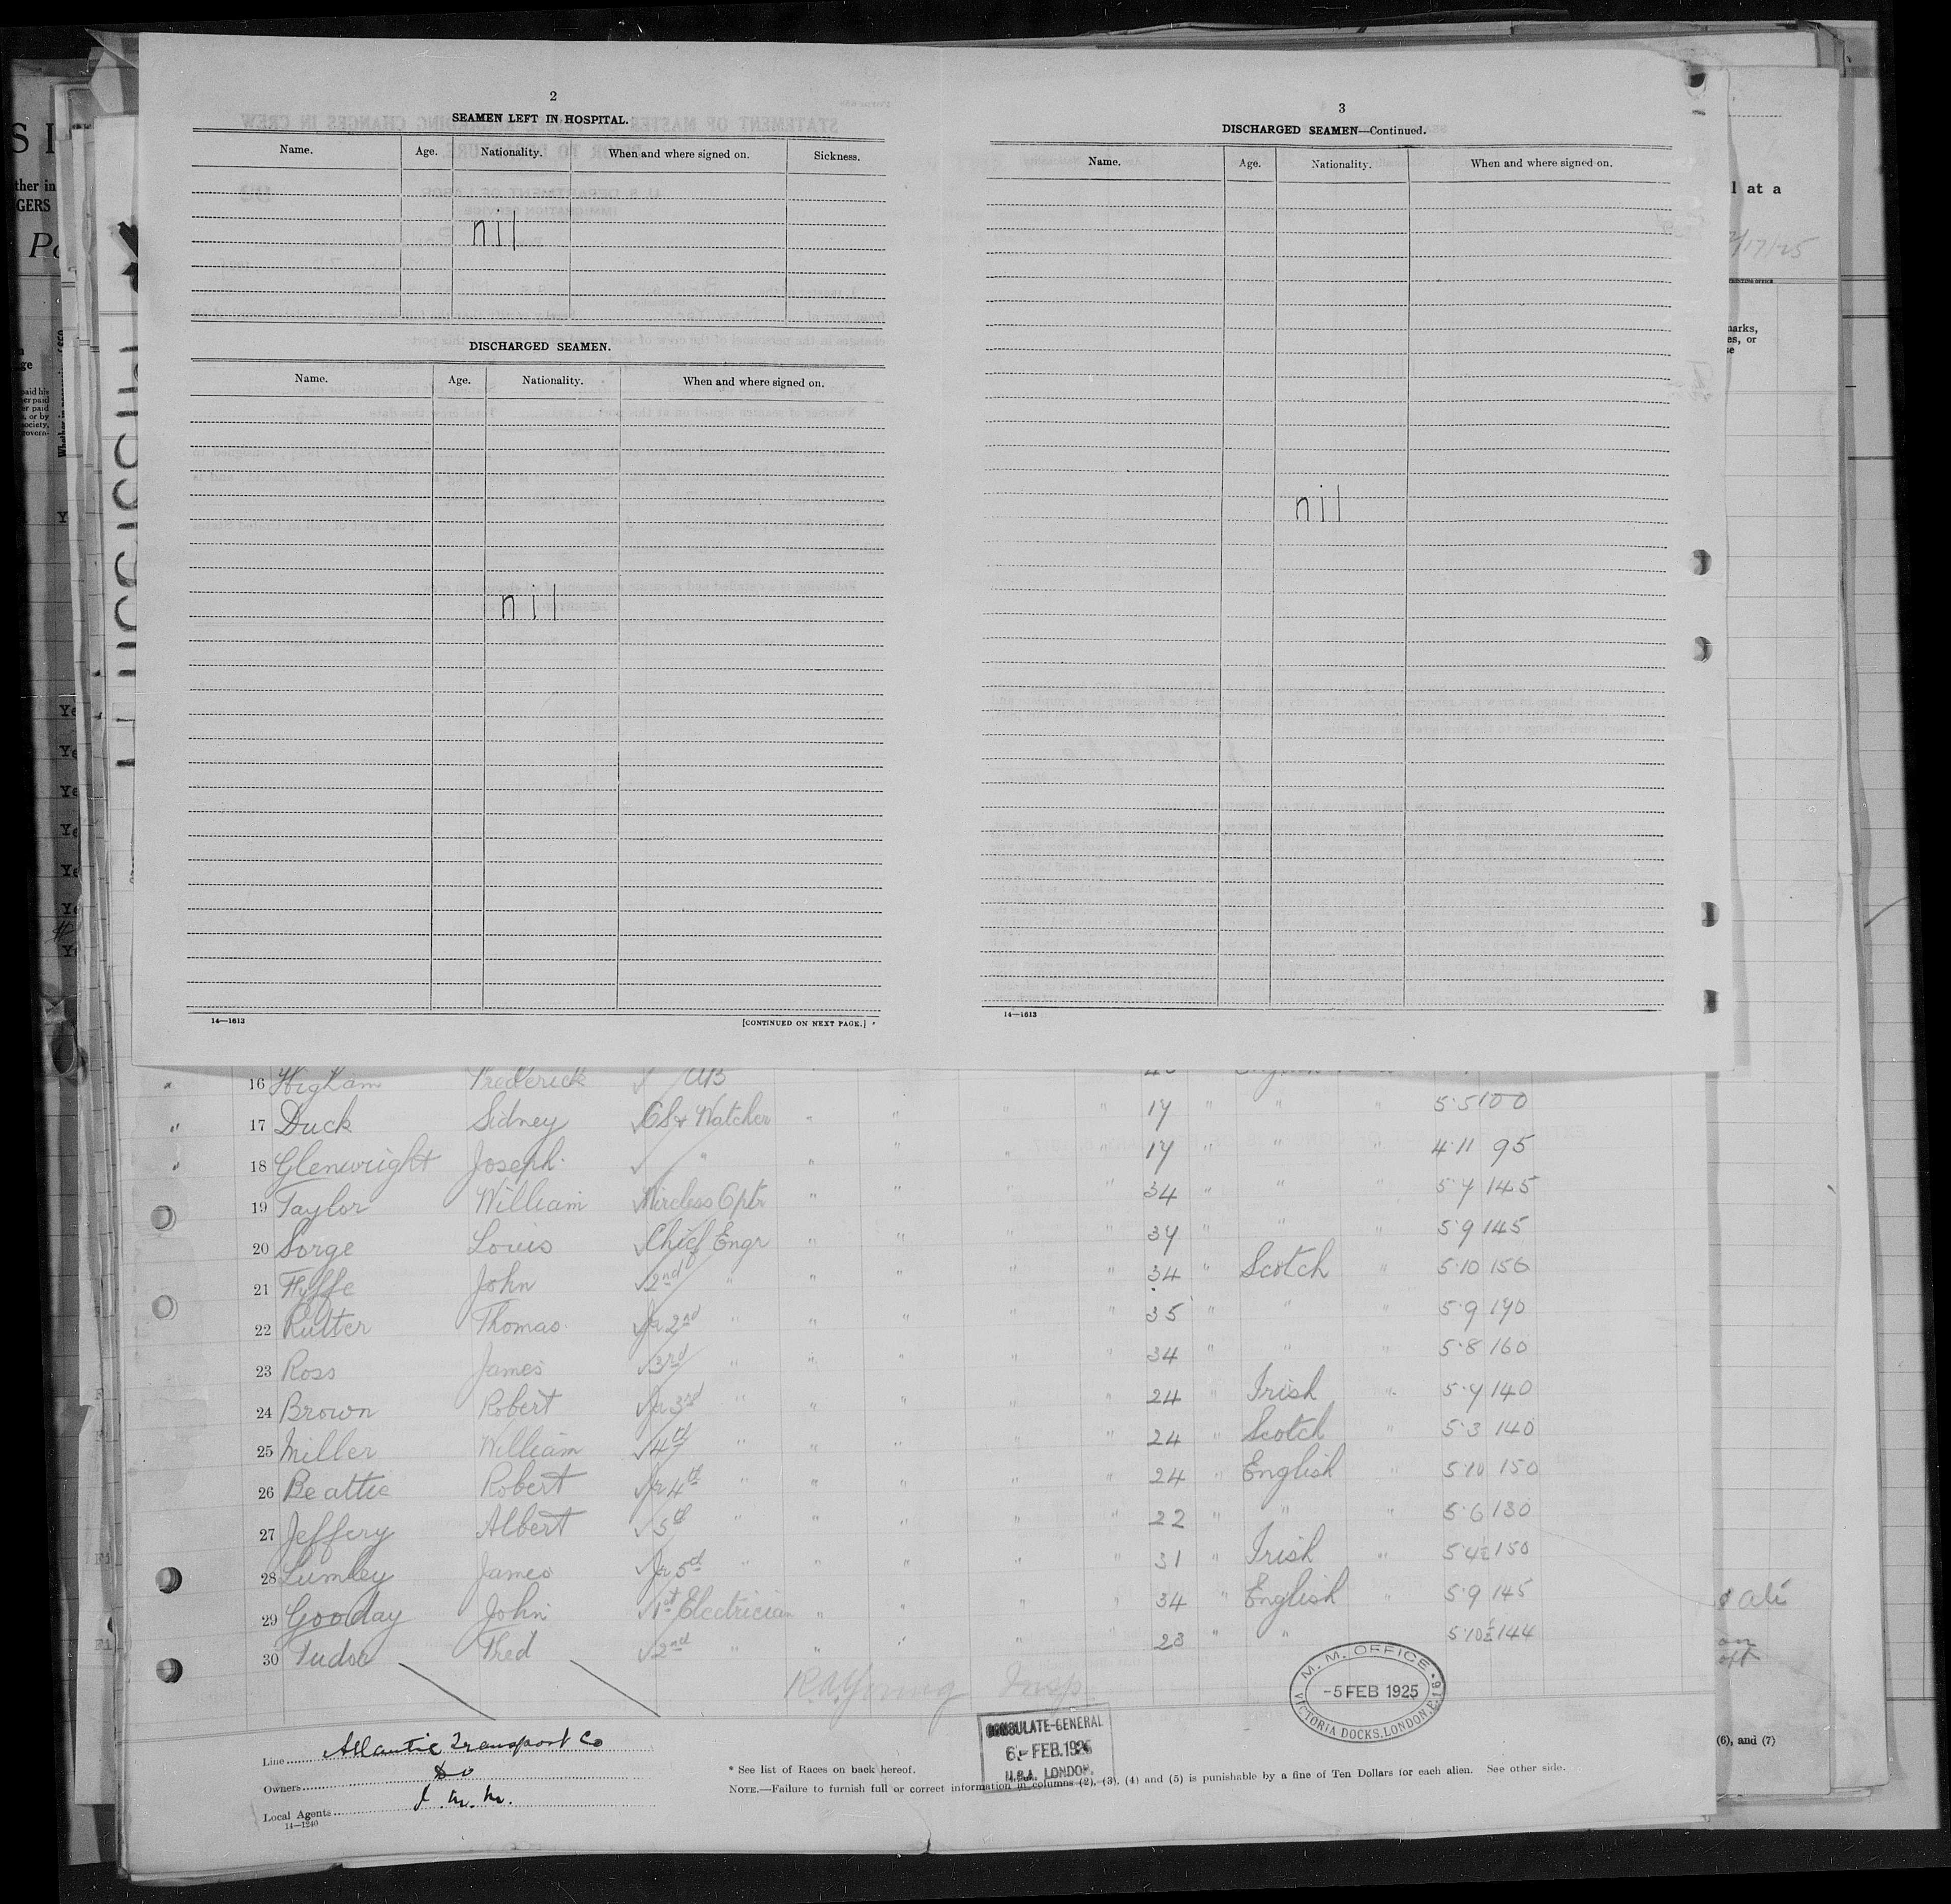 2
SEAMEN LEFT IN HOSPITAL.
Name. Age. Nationality. When and where signed on. Sickness.
nil
DISCHARGED SEAMEN.
Name. Age. Nationality. When and where signed on.
nil
14—1613 [CONTINUED ON NEXT PAGE.]
3
DISCHARGED SEAMEN—Continued.
Name. Age. Nationality. When and where signed on.
nil
14—1613
16 Higham Frederick AB
17 Duck Sidney OS & Watcher " " " " 17 " " " 5·5 100
18 Glenwright Joseph " " " " " 17 " " " 4·11 95
19 Taylor William Wireless Optr " " " " 34 " " " 5·7 145
20 Sorge Louis Chief Engr " " " " 37 " " " 5·9 145
21 Fyffe John 2nd " " " " " 34 " Scotch " 5·10 156
22 Rutter Thomas Jr 2nd " " " " " 35 " " " 5·9 190
23 Ross James 3rd " " " " " 34 " " " 5·8 160
24 Brown Robert Jr 3rd " " " " " 24 " Irish " 5·7 140
25 Miller William 4th " " " " " 24 " Scotch " 5·3 140
26 Beattie Robert Jr 4th " " " " " 24 " English " 5·10 150
27 Jeffery Albert 5th " " " " " 22 " " " 5·6 130
28 Lumley James Jr 5th " " " " " 31 " Irish " 5·4½ 150
29 Gooday John 1st Electrician " " " " 34 " English " 5·9 145
30 Tudor Fred 2nd " " " " " 23 " " 5·10½ 144
R.W. Young Insp.
M. M. OFFICE
-5 FEB 1925
VICTORIA DOCKS, LONDON, E.16
CONSULATE-GENERAL
6- FEB. 1925
U.S.A. LONDON.
Line Atlantic Transport Co
Owners Do
Local Agents I. M. M.
14—1240
* See list of Races on back hereof.
NOTE.—Failure to furnish full or correct information in columns (2), (3), (4) and (5) is punishable by a fine of Ten Dollars for each alien. See other side.
l at a
(6), and (7)